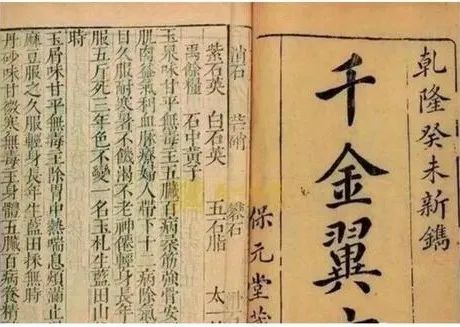 乾隆癸未新鐫
千金翼
保元堂
消石 芒硝 礬石
紫石英 白石英 五石脂 太一
禹餘糧 石中黃子
玉泉味甘平無毒主五臟百病柔筋強骨安
肌肉益氣利血脈療婦人帶下十二病除氣
日久服耐寒暑不饑渴不老神僊輕身長年
服五斤死三年色不變一名玉札生藍田山
時
玉屑味甘平無毒主除胃中熱喘息煩滿止
麻豆服之久服輕身長年生藍田採無時
丹砂味甘微寒無毒主身體五臟百病養精